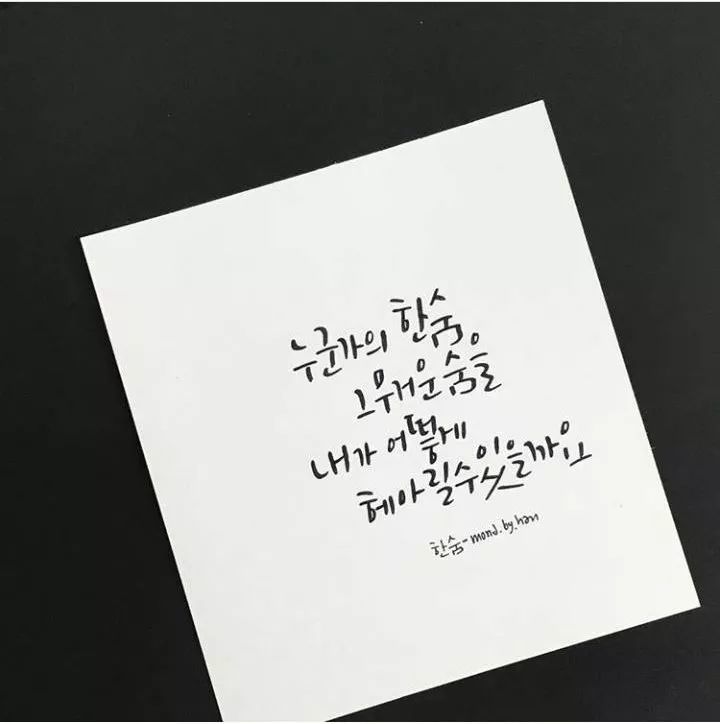 누군가의 한숨
그 무거운 숨을
내가 어떻게
헤아릴 수 있을까요
한숨-mond.by.han